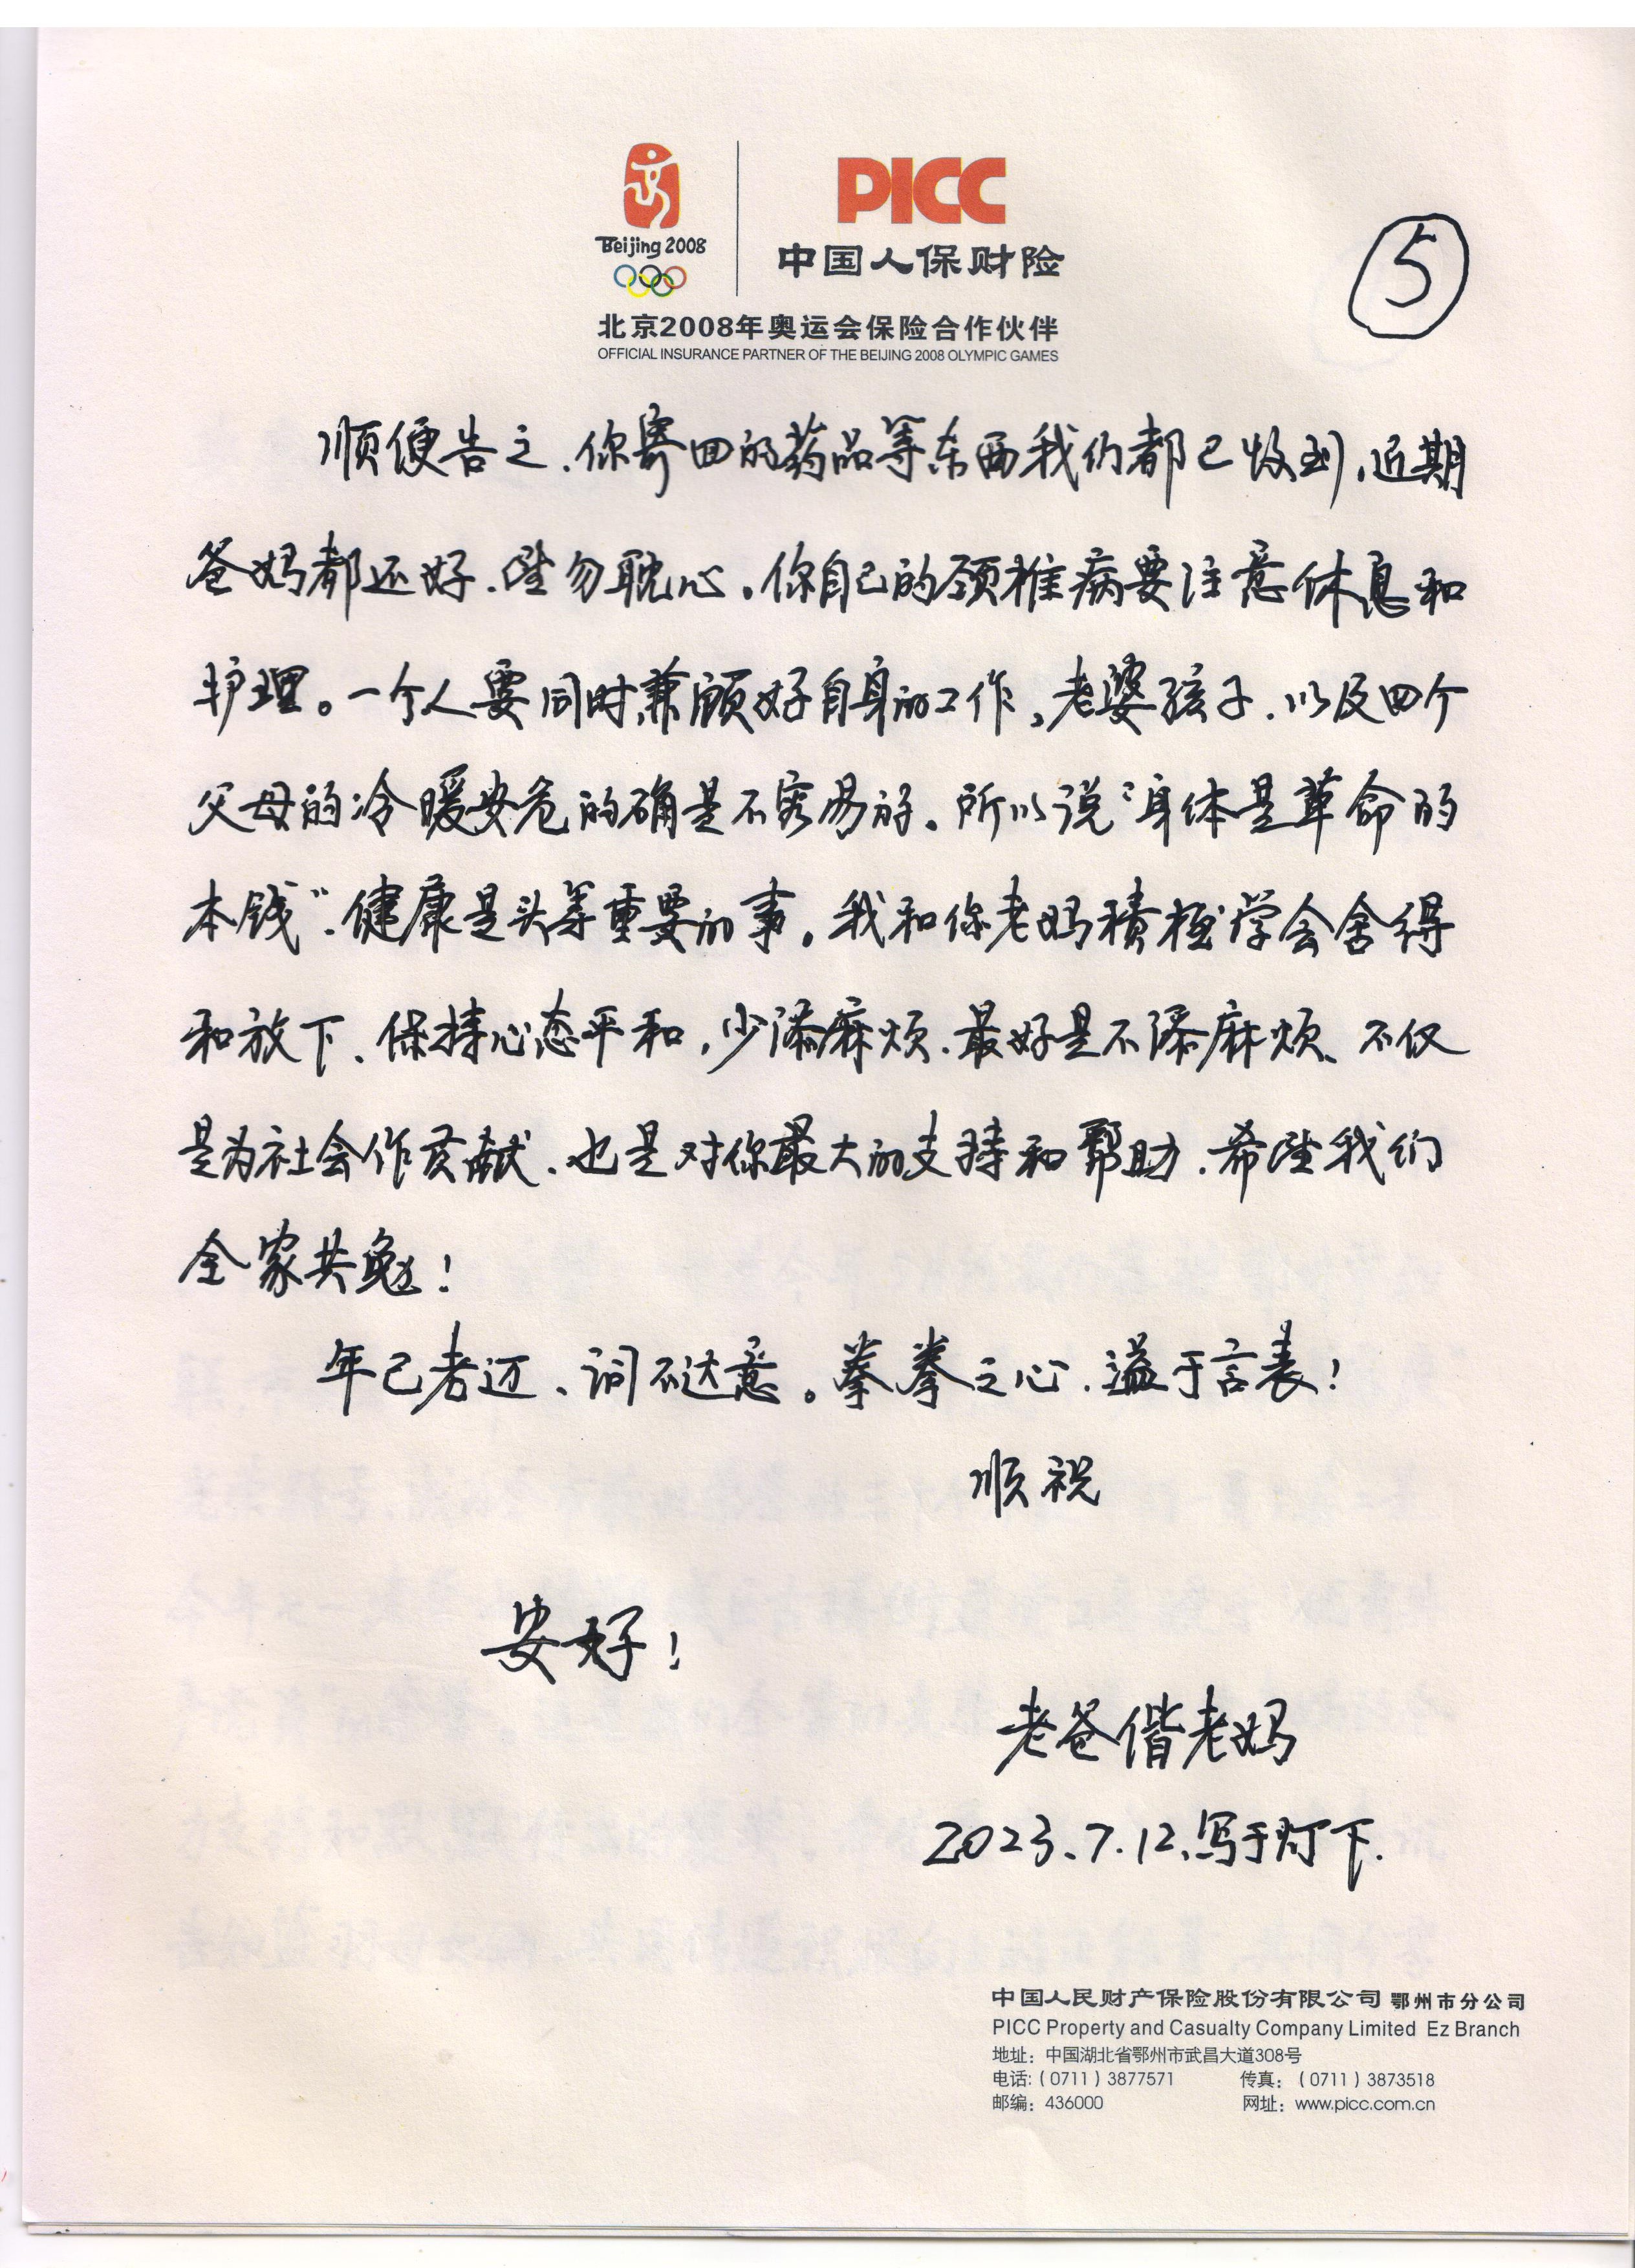 Beijing 2008
PICC
中国人保财险
北京2008年奥运会保险合作伙伴
OFFICIAL INSURANCE PARTNER OF THE BEIJING 2008 OLYMPIC GAMES
5
顺便告之、你寄回的药品等东西我们都已收到，近期
爸妈都还好、望勿耽心。你自己的颈椎病要注意休息和
护理。一个人要同时兼顾好自身的工作，老婆孩子、以及四个
父母的冷暖安危的确是不容易的。所以说“身体是革命的
本钱”、健康是头等重要的事。我和你老妈积极学会舍得
和放下、保持心态平和，少添麻烦、最好是不添麻烦、不仅
是为社会作贡献、也是对你最大的支持和帮助、希望我们
全家共勉！
年已老迈、词不达意。拳拳之心、溢于言表！
顺祝
安好！
老爸偕老妈
2023、7.12、写于灯下.
中国人民财产保险股份有限公司 鄂州市分公司
PICC Property and Casualty Company Limited Ez Branch
地址：中国湖北省鄂州市武昌大道308号
电话:（0711）3877571 传真：（0711）3873518
邮编：436000 网址：www.picc.com.cn